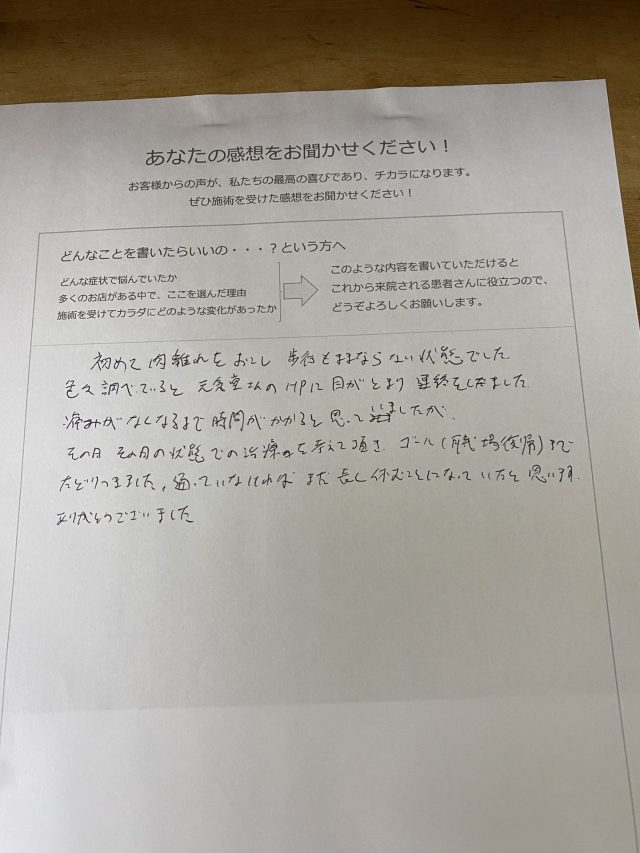 あなたの感想をお聞かせください！
お客様からの声が、私たちの最高の喜びであり、チカラになります。
ぜひ施術を受けた感想をお聞かせください！
どんなことを書いたらいいの・・・？という方へ
どんな症状で悩んでいたか
多くのお店がある中で、ここを選んだ理由
施術を受けてカラダにどのような変化があったか
このような内容を書いていただけると
これから来院される患者さんに役立つので、
どうぞよろしくお願いします。
初めて肉離れをおこし 歩行もままならない状態でした
色々調べていると 元気堂さんのHPに目がとまり 連絡をしました
痛みがなくなるまで時間がかかると思っていましたが、
その日 その日の状態での治療を考えて頂き ゴール(職場復帰)まで
たどりつきました。通っていなければ まだ長く休むことになっていたと思います。
ありがとうございました